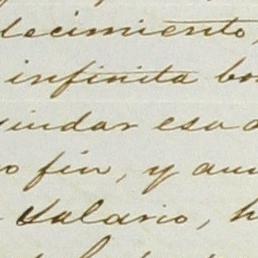 lecimiento,
infinita bo
indar esa a
o fin, y aun
salario, h